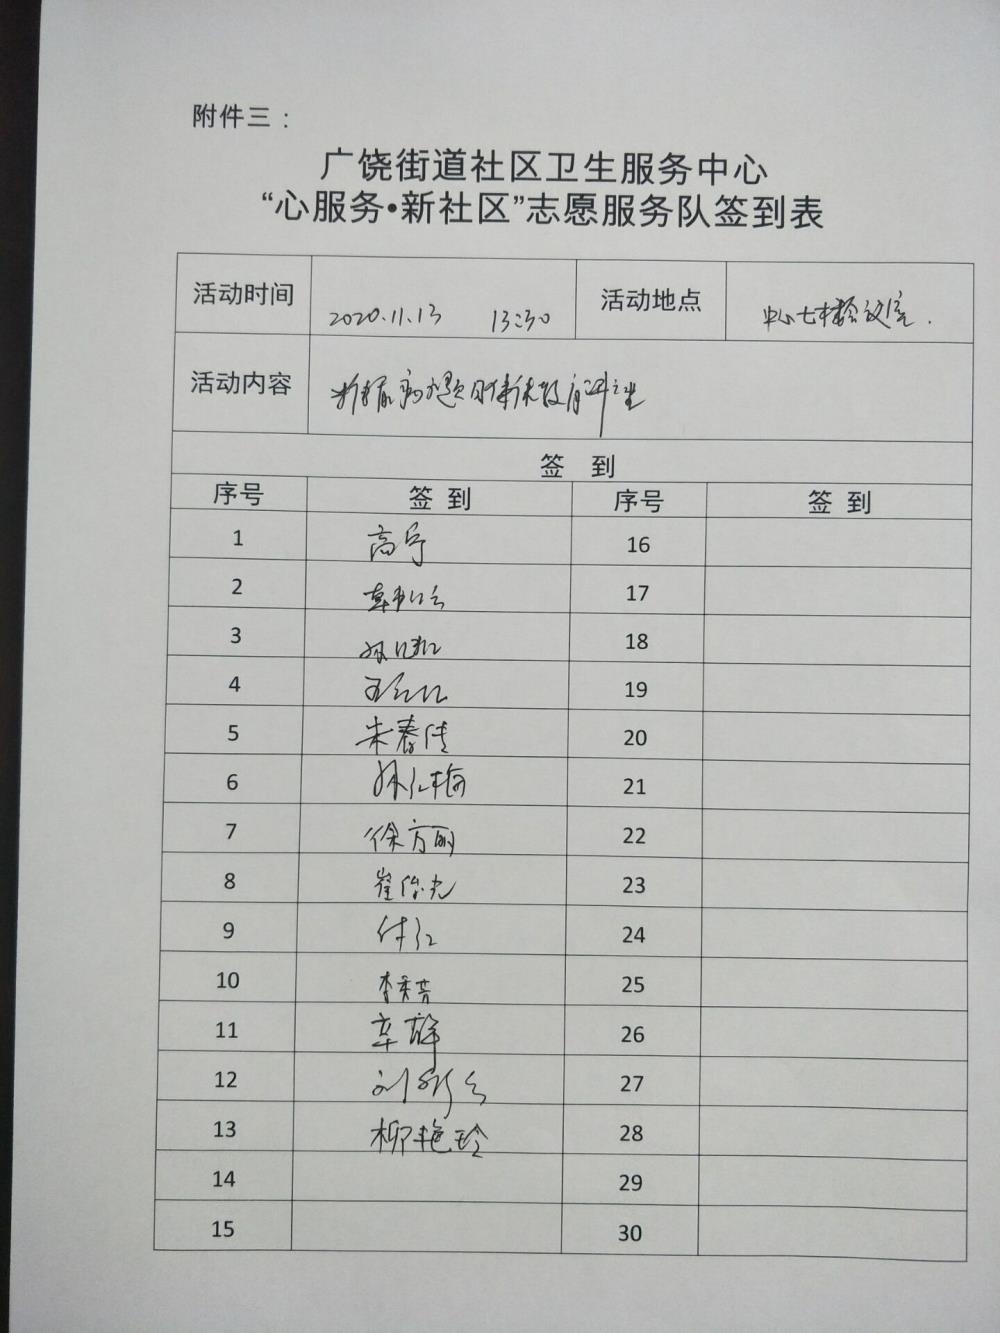 附件三：
广饶街道社区卫生服务中心
“心服务•新社区”志愿服务队签到表
活动时间 2020.11.13 13:30 活动地点 中心七楼会议室.
活动内容 糖尿病
签 到
序号 签 到 序号 签 到
1 高宁 16
2 17
3 孙 18
4 王红红 19
5 朱春 20
6 孙红梅 21
7 徐方丽 22
8 崔 23
9 红 24
10 李秀芳 25
11 辛 26
12 刘 27
13 柳艳玲 28
14 29
15 30